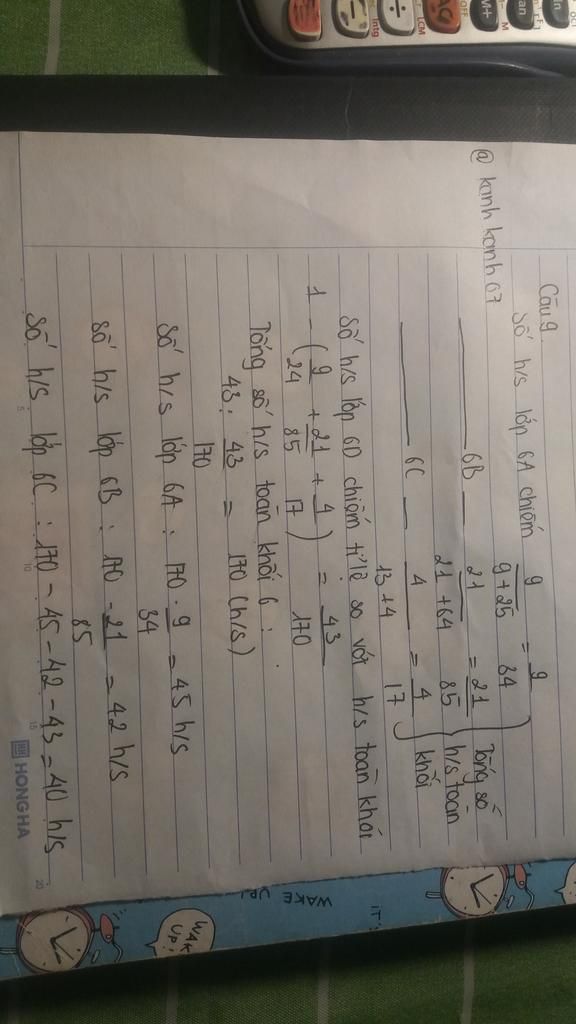 Câu 9.
Số h/s lớp 6A chiếm 9/(9+25) = 9/34
—— 6B — 21/(21+64) = 21/85
—— 6C — 4/(13+4) = 4/17
Tổng số
h/s toàn
khối
@ kanh kanh 07
Số h/s lớp 6D chiếm tỉ lệ so với h/s toàn khối
1 - (9/24 + 21/85 + 4/17) = 43/170
Tổng số h/s toàn khối 6 :
43 : 43/170 = 170 (h/s)
Số h/s lớp 6A : 170 . 9/34 = 45 h/s
Số h/s lớp 6B : 170 - 21/85 = 42 h/s
Số h/s lớp 6C : 170 - 45 - 42 - 43 = 40 h/s
5 10 15 20
HONG HA
WAKE UP!
IT'
WAK
UP!
AC
OFF
M+
M
LCM
Intg
÷